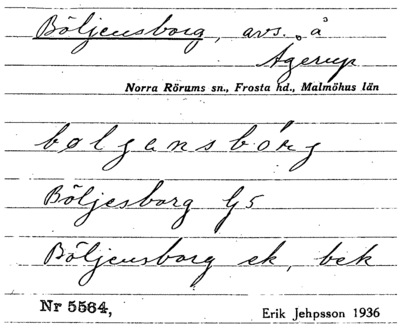 Böljensborg, avs. å
Agerup
Norra Rörums sn., Frosta hd., Malmöhus län
bølgansbórg
Böljesborg G5
Böljensborg ek, bek
Nr 5564,
Erik Jehpsson 1936